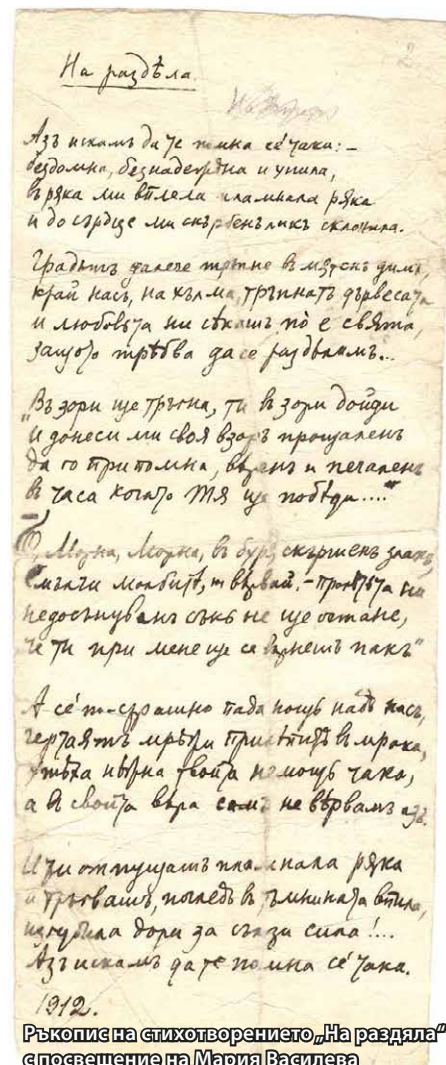 На раздѣла.
2
Азъ искамъ да те помна сé така: –
бездомна, безнадеждна и унила,
въ рѫка ми вплела пламнала рѫка
и до сърдце ми скърбенъ ликъ склонила.
Градътъ далече тръпне в мѫтенъ димъ,
край насъ, на хълма, тръпнатъ дървесата
и любовьта ни сѣкашъ по̀ е свята,
защото трѣбва да се раздѣлимъ...
„Въ зори ще тръгна, ти въ зори дойди
и донеси ми своя взоръ прощаленъ
да го припомна, вѣренъ и печаленъ
въ часа когато Тя ще побѣди....“
О, Морна, Морна, въ буря скършенъ злакъ,
молбитѣ, вѣрвай, – прольтьта ни
недосънуванъ сънь не ще остане,
че ти при мене ще се върнешъ пакъ“
А сé по-страшно пада нощь надъ насъ,
чертаятъ мрѣжи прилѣпитѣ в мрака,
утѣха твойта немощь чака,
а въ свойта вѣра самъ не вѣрвамъ азъ.
И ти отпущашъ пламнала рѫка
и тръгвашъ, погледъ в тъмнината впила,
изгубила дори за сълзи сила!...
Азъ искамъ да те помна сé така.
1912.
Ръкопис на стихотворението „На раздяла“
с посвещение на Мария Василева